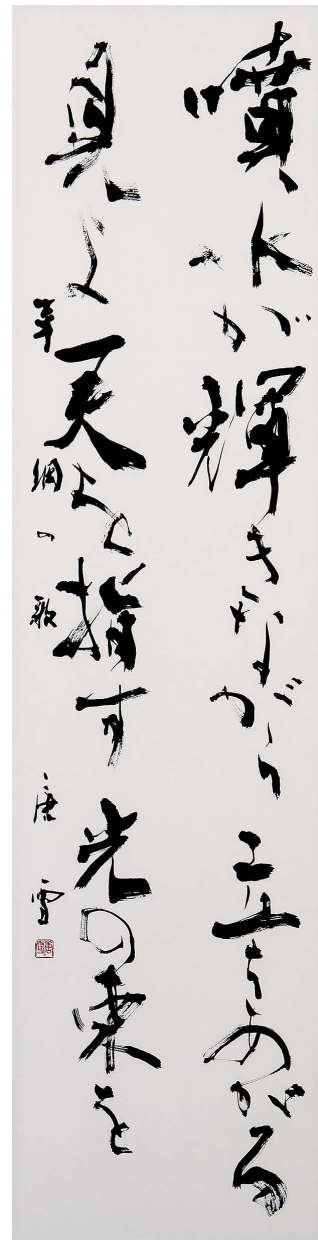 噴水が輝きながら立ちあがる
見よ天を指す光の束を
幸綱の歌